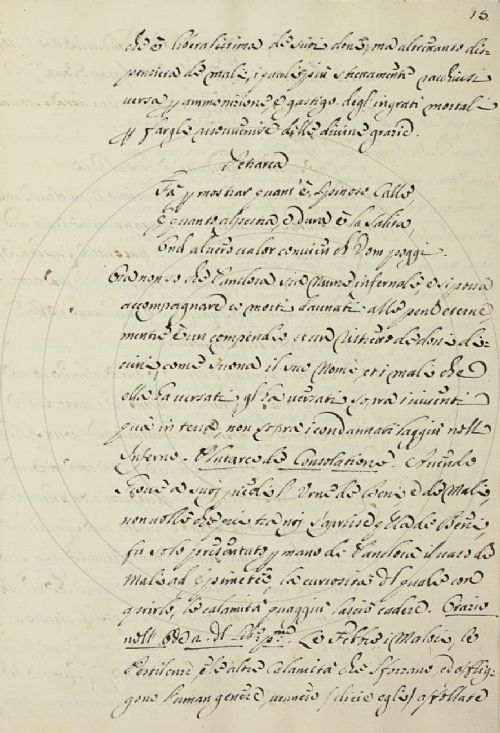 15.
che è liberalissima de suoi doni, ma altretanto dis-
pensiera de mali, i quali più strettamente racchiusi
versa p ammonizione e gastigo degl'ingrati mortali
p fargli risovvenire delle divine grazie.
Petrarca
Fa p mostrar quant'è spinoso Calle,
E quanto alpestra, e dura è la salita,
Ond'al vero valor convien ch'Uom poggi.
Ora non so che Pandora sia Nume infernale, e si possa
accompagnare co morti dannati alle pene eterne
mentre è un compendio, et un di doni de-
come suona il suo Nome, et i mali che
ella ha versati, gl'ha versati sopra i viventi
qua in terra, non sopra i condannati laggiù nell
Inferno. Plutarco de Consolatione. Avendo
Giove a suoi piedi l'Urne de Beni e de Mali,
non volle che fra noi s'aprisse q.la de Beni,
fu solo presentato p mano de Pandora il vaso de
Mali ad Epimeteo, la curiosità dl quale con
aprirlo, le calamità quaggiù lasciò cadere. Orazio
nell' Ode a. dl lib: pmo. Le Febbri, i Malori, le
Pestilenze, e le altre Calamità che sforzano, ed afflig-
gono l'uman genere, vennero (dice egli) affollate